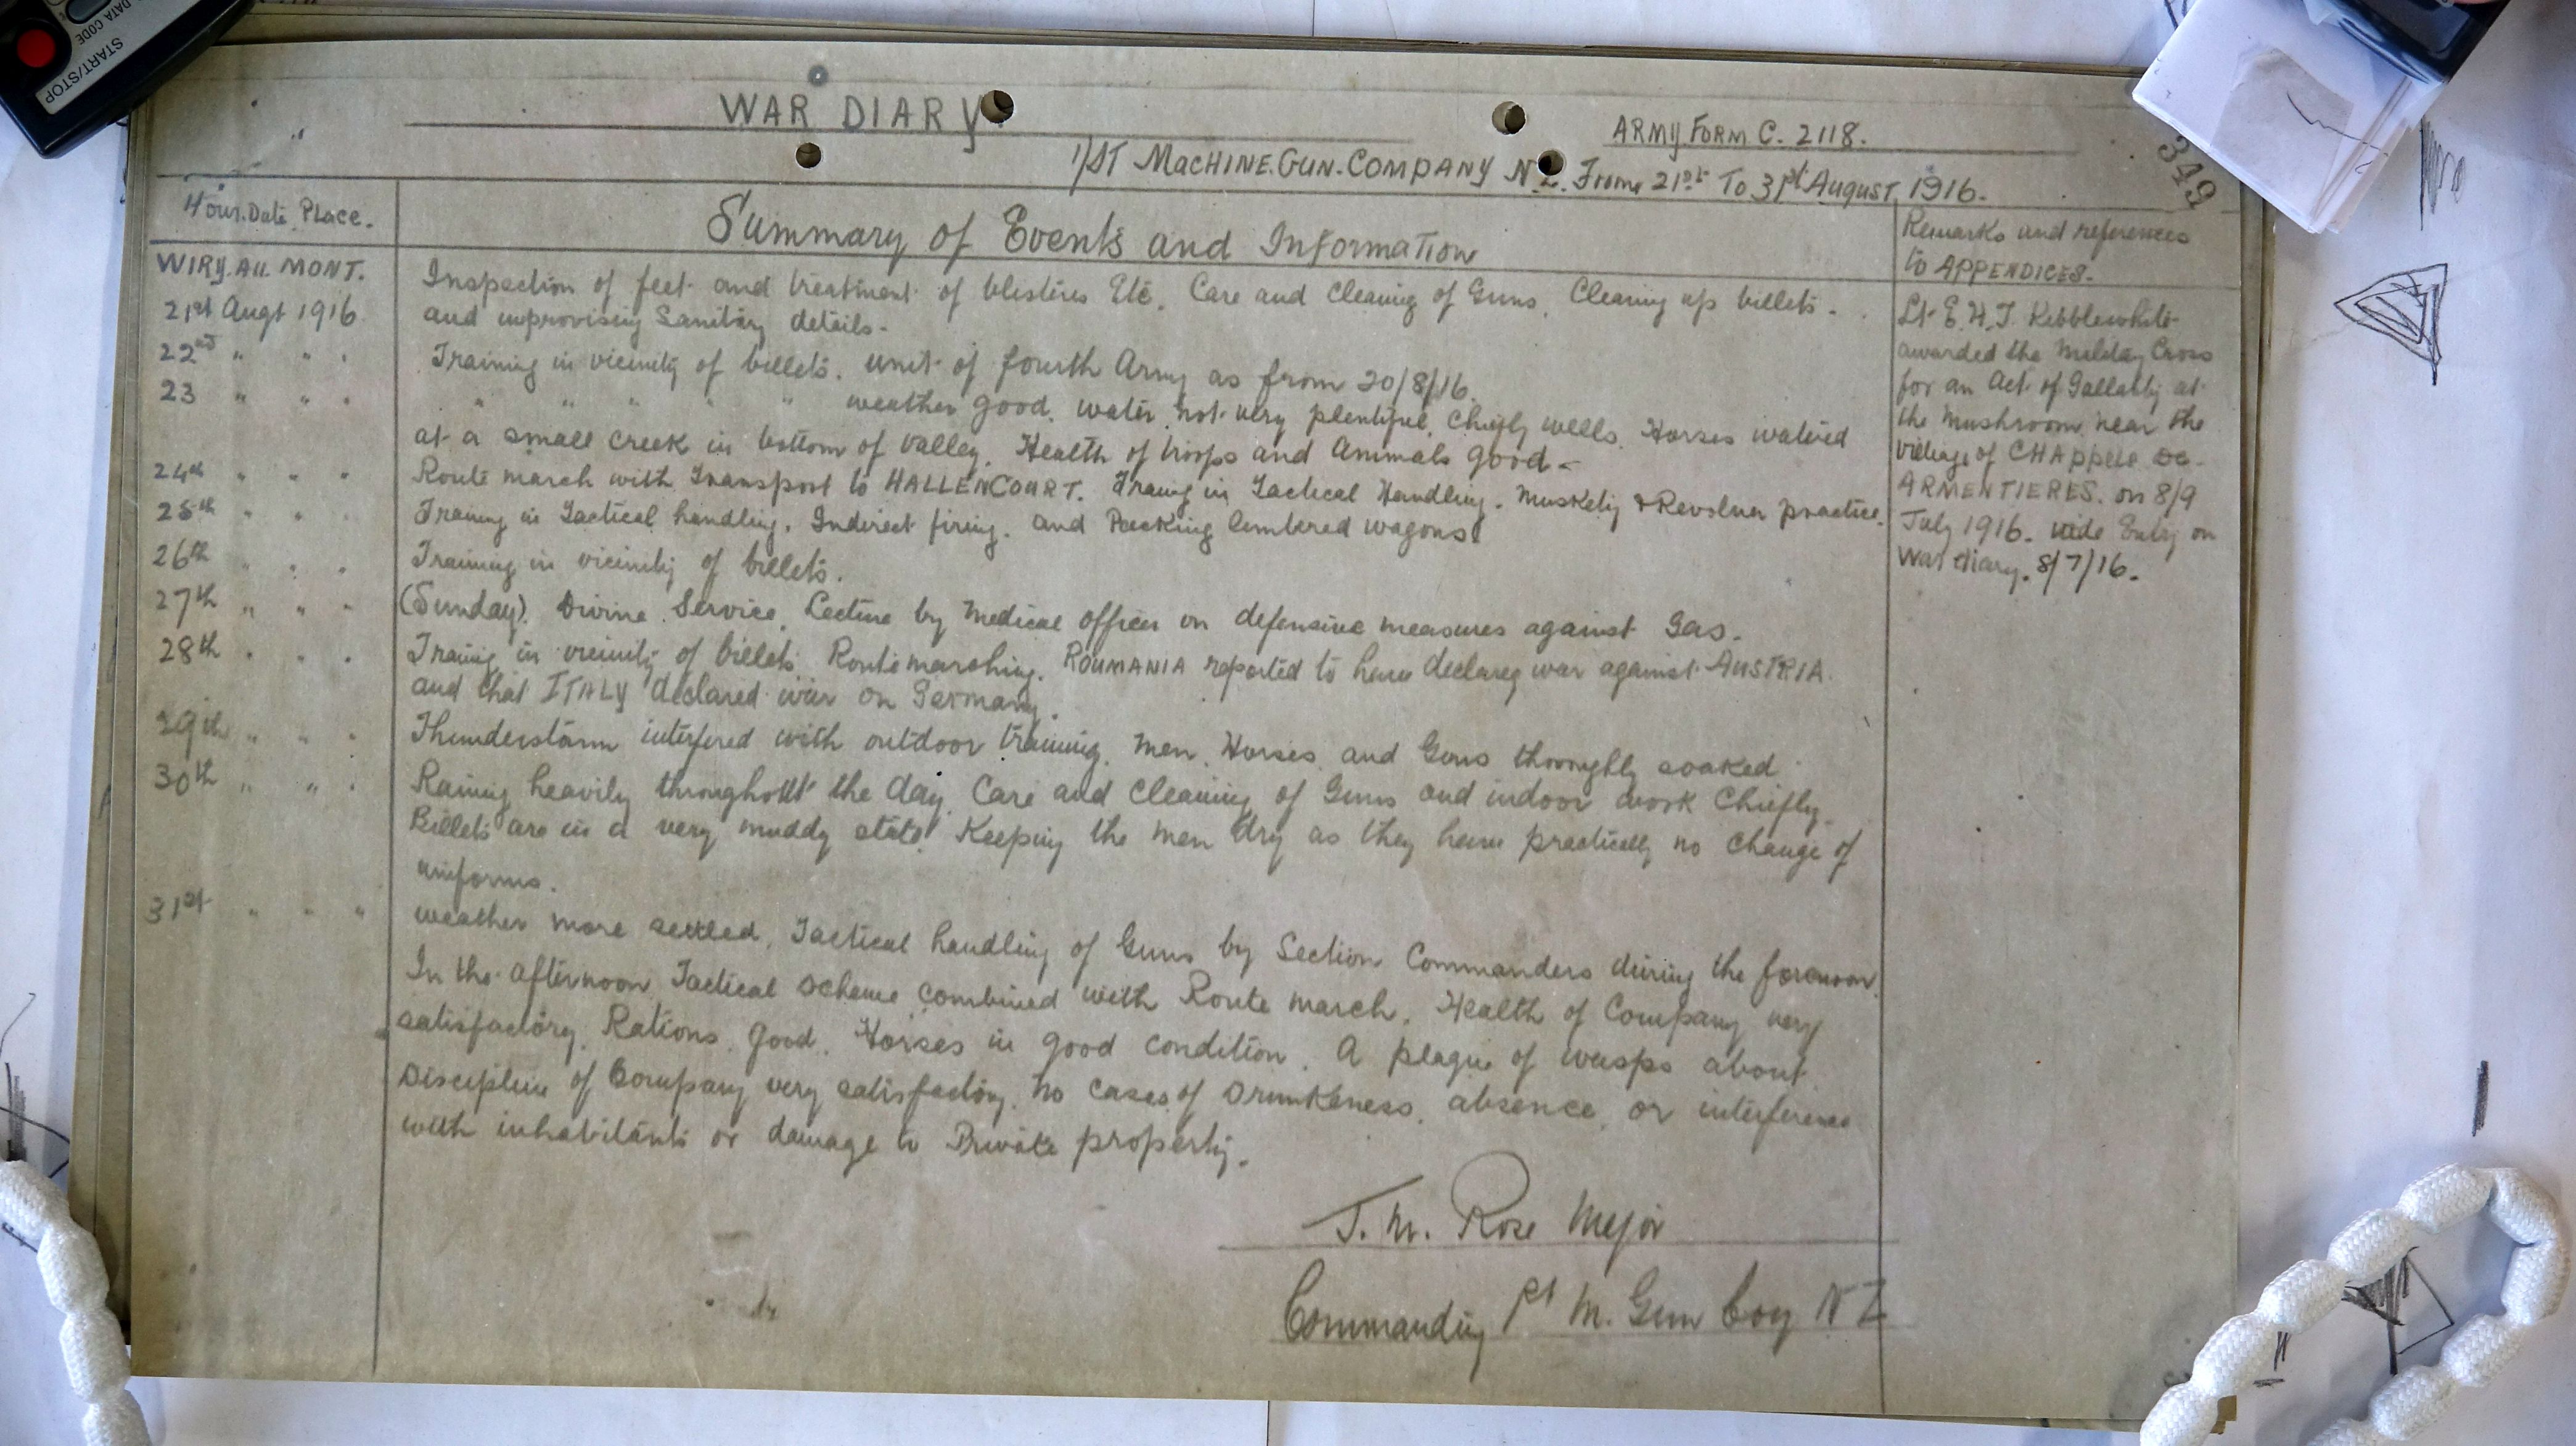 START/STOP
DATA CODE
WAR DIARY.
ARMY FORM C. 2118.
349
1/ST MACHINE.GUN.COMPANY N.Z. From 21st To 31st August, 1916.
Hour. Date. Place.
Summary of Events and Information
Remarks and references
to APPENDICES.
WIRY.AU MONT.
21st Augt 1916
Inspection of feet and treatment of blisters Etc. Care and Cleaning of Guns. Cleaning up billets.
and improvising Sanitary details.
22nd " " " Training in vicinity of billets. unit of fourth Army as from 20/8/16.
23 " " " " " " " " weather good. water not very plentiful. Chiefly wells. Horses watered
at a small creek in bottom of valley. Health of troops and Animals good -
24th " " " Route march with Transport to HALLENCOURT. Traing in Tactical Handling. Musketry & Revolver practice.
25th " " " Training in Tactical handling. Indirect firing. and Packing limbered wagons
26th " " " Training in vicinity of billets.
27th " " " (Sunday). Divine Service. Lecture by Medical Officer on defensive measures against Gas.
28th " " " Training in vicinity of billets. Route marching. ROUMANIA reported to have declared war against AUSTRIA.
and that ITALY declared war on Germany.
29th " " " Thunderstorm interfered with outdoor training. Men, Horses and Guns thoroughly soaked.
30th " " " Raining heavily throughout the day. Care and Cleaning of Guns and indoor work Chiefly.
Billets are in a very muddy state. Keeping the men dry as they have practically no change of
uniforms.
31st " " " weather more settled, Tactical handling of Guns by Section Commanders during the forenoon.
In the afternoon Tactical scheme combined with Route march. Health of Company very
satisfactory. Rations good. Horses in good condition. A plague of wasps about.
Discipline of Company very satisfactory. No cases of Drunkeness, absence, or interference
with inhabitants or damage to Private property.
Lt E.H.J. Kebblewhite
awarded the Military Cross
for an Act of Gallantry at
the Mushroom near the
village of CHAPPELLE DE-
ARMENTIERES. on 8/9
July 1916. vide Entry on
War diary. 8/7/16.
J.M. Rose Major
Commanding 1st M. Gun Coy N Z